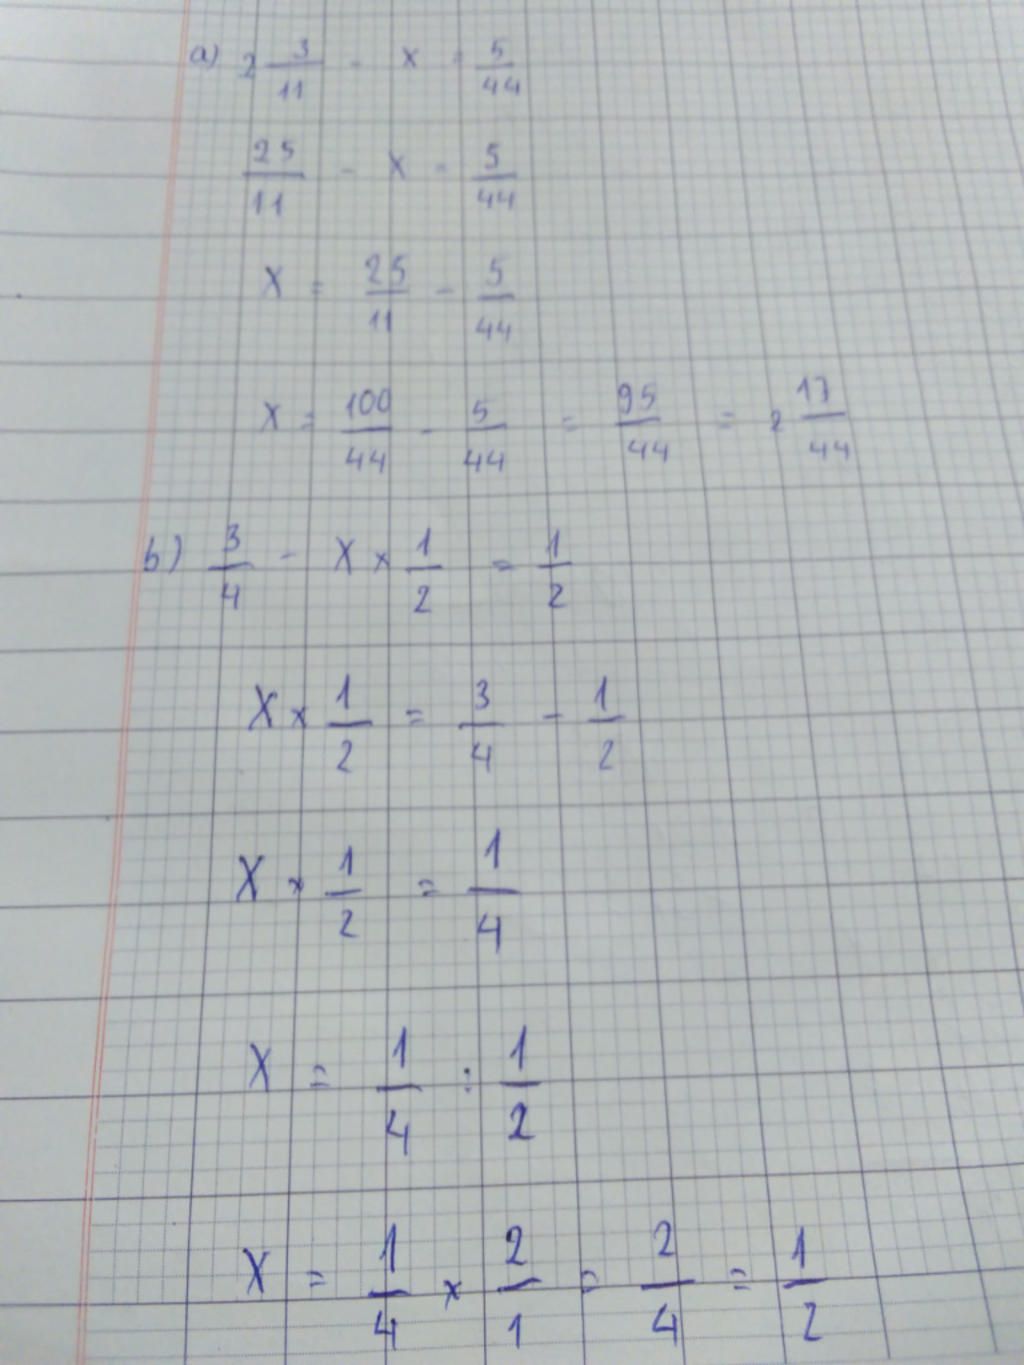 a) 2 3/11 - x = 5/44
25/11 - x = 5/44
x = 25/11 - 5/44
x = 100/44 - 5/44 = 95/44 = 2 17/44
b) 3/4 - x × 1/2 = 1/2
x × 1/2 = 3/4 - 1/2
x × 1/2 = 1/4
x = 1/4 : 1/2
x = 1/4 × 2/1 = 2/4 = 1/2